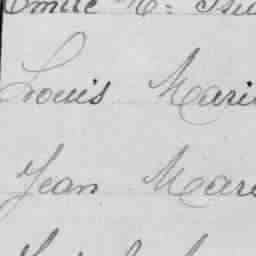 Emile
Louis Mari
Jean Mar